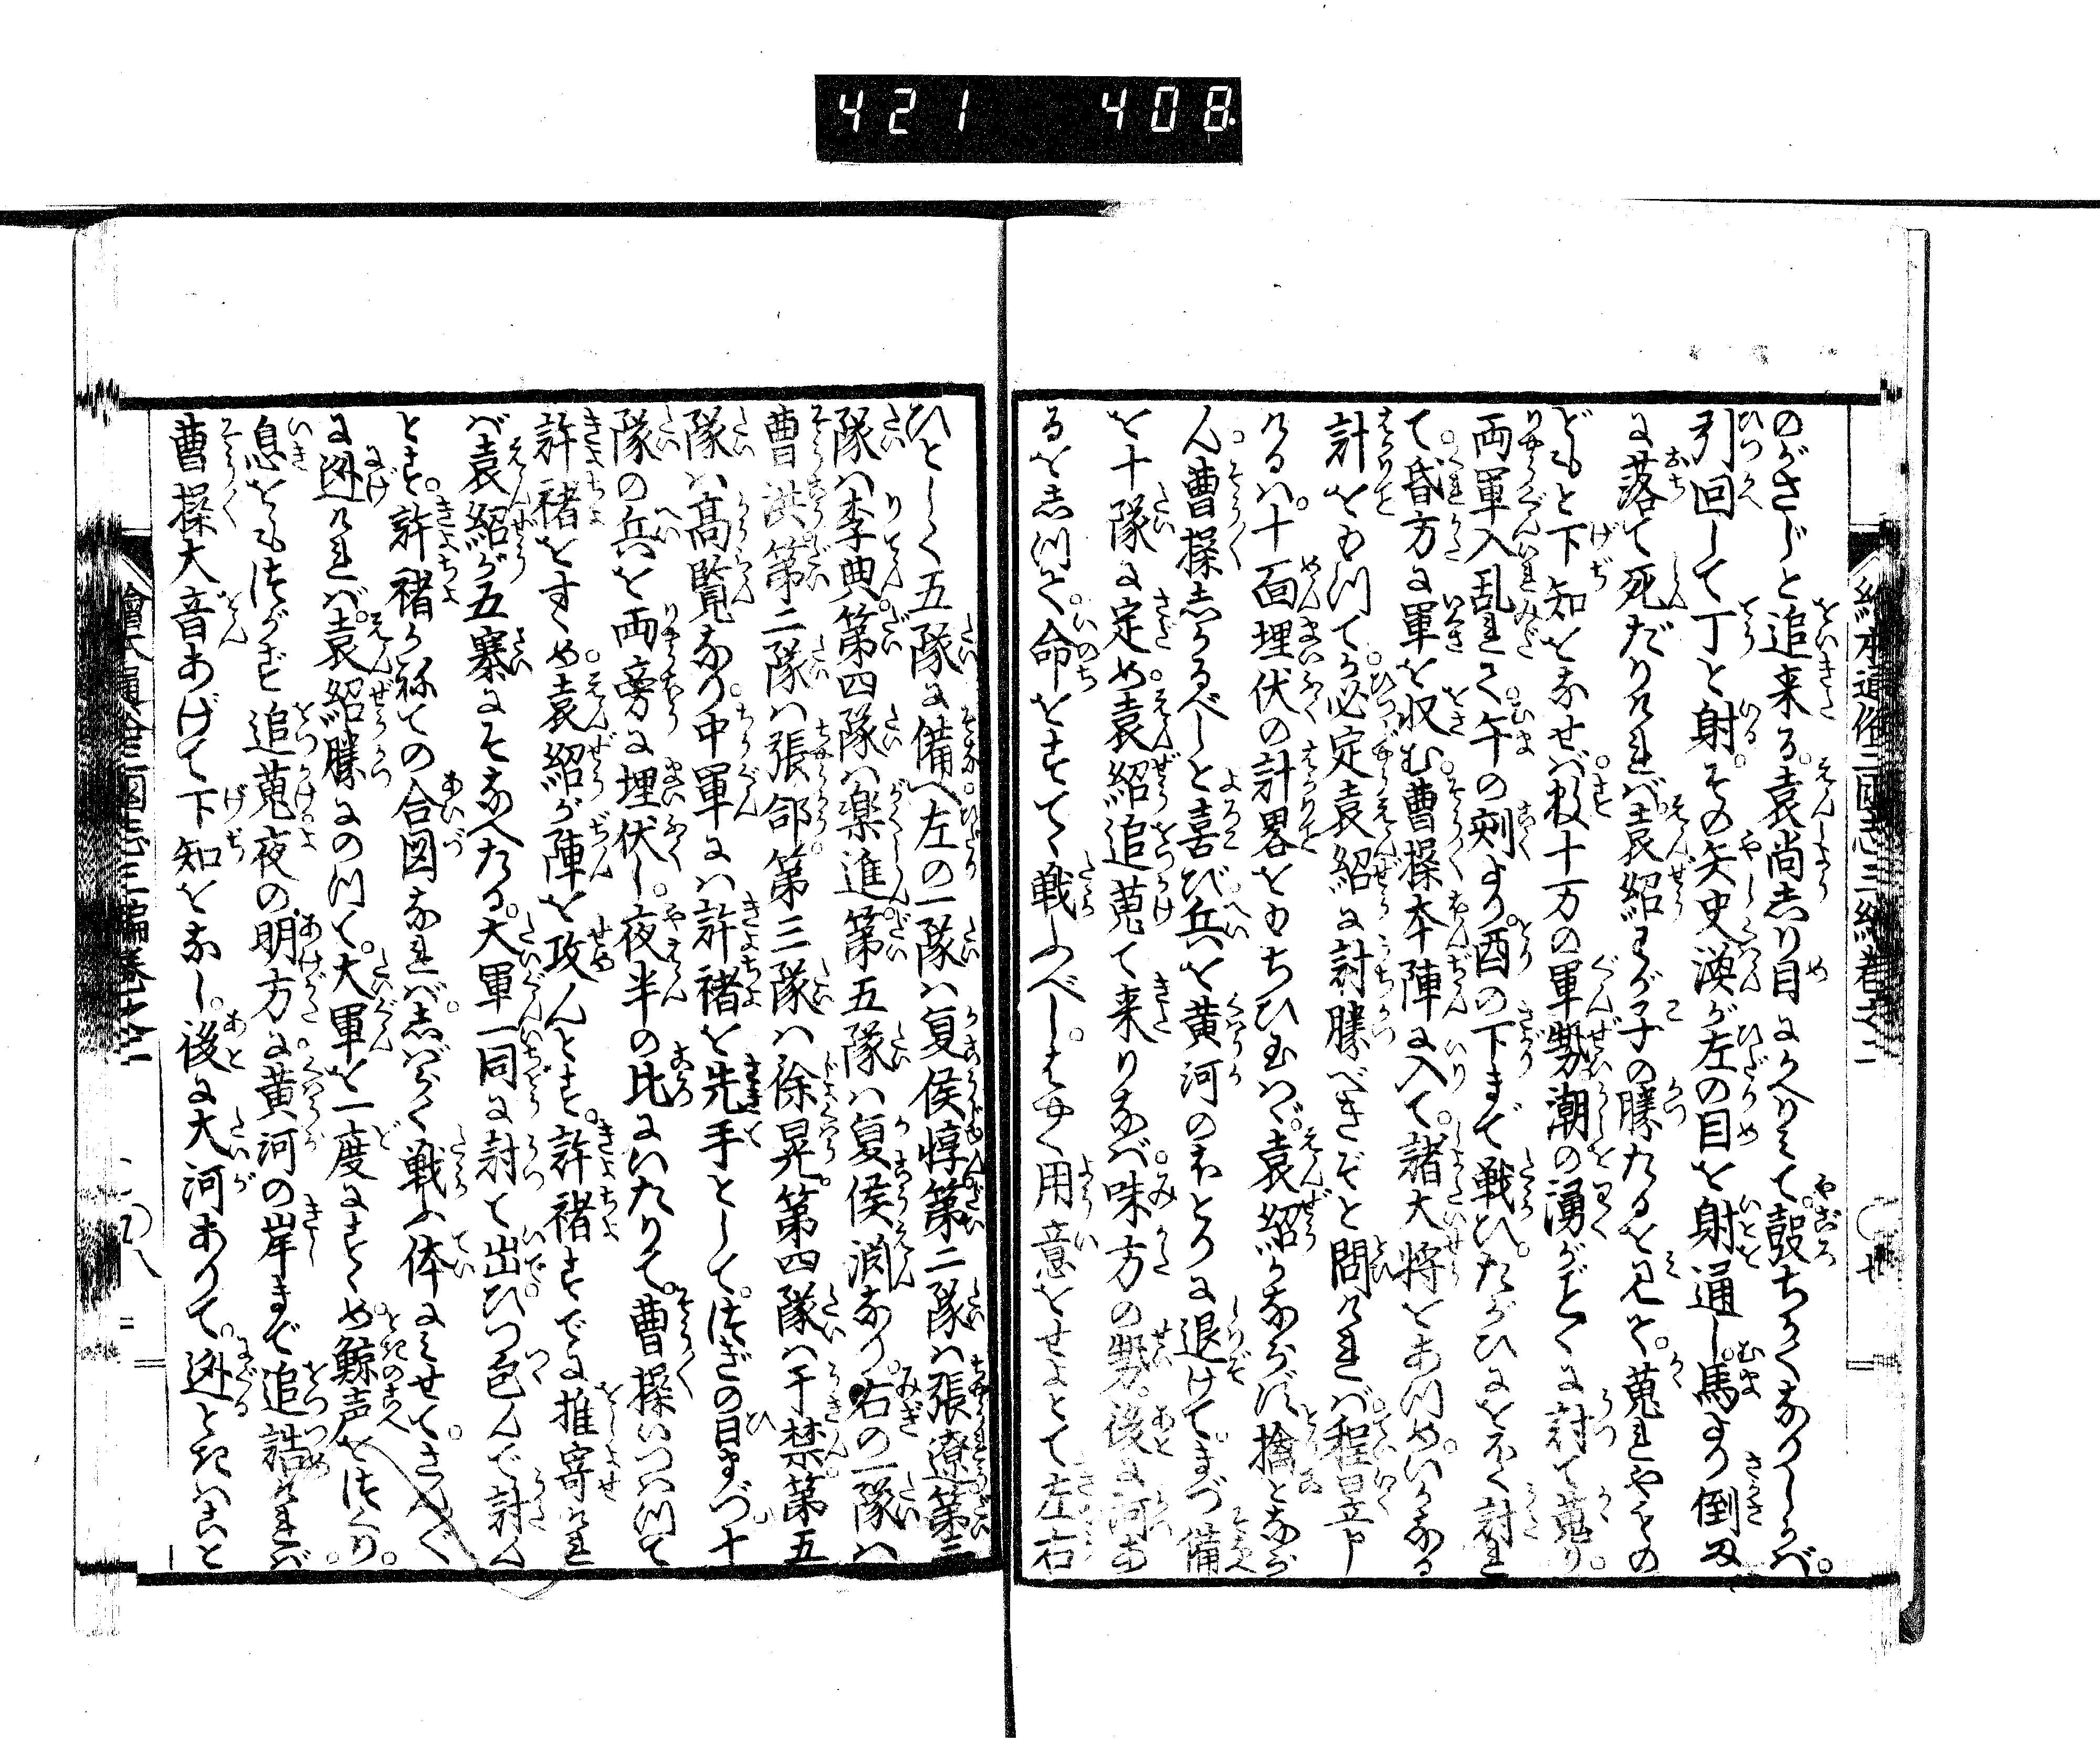 421 408
繪本通俗三國志三編巻之二
のがさじと追来る。袁尚しり目にかへりみて。鼓ちかくなりしかば。
引回して丁と射。その矢史渙が左の目を射通し。馬より倒に
に落て死だりければ。袁紹わが子の勝たるを見て。蒐れやもの
どもと下知をなせば。数十万の軍勢潮の湧がごとくに討て蒐り。
両軍入乱れて。午の刻より酉の下まで戦ひ。たがひに多く討れ
て。昏方に軍を収む。曹操本陣に入て。諸大将をあつめ。いかなる
計をもつてか。必定袁紹に討勝べきぞと問ければ。程昱申
けるは。十面埋伏の計畧をもちひ玉はゞ。袁紹かならず擒となら
ん。曹操しかるべしと喜び。兵を黄河のほとりに退けて。まづ備
を十隊に定め。袁紹追蒐て来りなば。味方の勢。後に河あ
るをしつて。命をすてゝ戦ふべし。はやく用意をせよとて左右
ひとしく五隊に備へ。左の一隊は夏侯惇。第二隊は張遼。第三
隊は李典。第四隊は楽進。第五隊は夏侯淵なり。右の一隊は
曹洪。第二隊は張郃。第三隊は徐晃。第四隊は于禁。第五
隊は高覧なり。中軍には許褚を先手として。次ぎの日まづ十
隊の兵を両旁に埋伏し。夜半の比にいたりて。曹操いつはつて
許褚をすゝめ。袁紹が陣を攻んとす。許褚すでに推寄けれ
ば。袁紹が五寨にそなへたる。大軍一同に討て出。ひつ包んで討ん
とす。許褚かねての合図なれば。しばらく戦ふ体にみせて。さんざ
に迯ければ。袁紹勝にのつて。大軍を一度にすゝめ。鯨声をつくり。
息をもつがず追蒐。夜の明方に黄河の岸まで追詰ければ
曹操大音あげて下知をなし。後に大河ありて。迯るときはこと
繪本通俗三國志三編巻之二